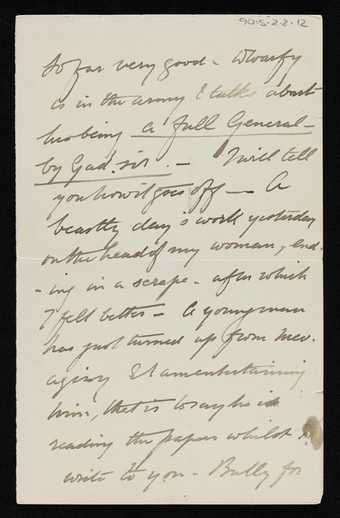 90-5-2.2-12
so far very good - Dwarfy
is in the army & talks about
his being a full General -
by Gad. sir. - I will tell
you how it goes off - A
beastly day's work yesterday
on the head of my woman, end-
-ing in a scrape - after which
I felt better - A young man
has just turned up from my
agency & I am entertaining
him, that is to say he is
reading the paper whilst I
write to you - Bully for